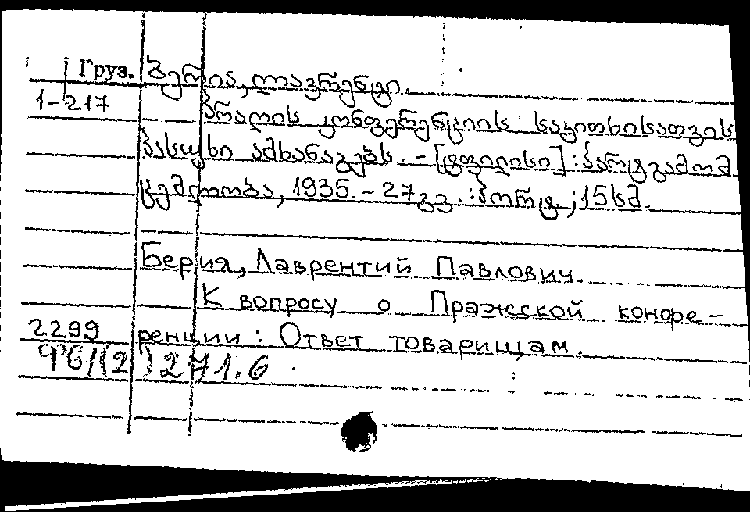 Груз. ბერია, ლავრენტი.
1-217
პრაღის კონფერენციის საკითხისათვის
პასუხი ამხანაგებს. - [ტფილისი] : პარტგამომ
ცემლობა, 1935. - 27 გვ. : პორტ ; 15 სმ.
Берия, Лаврентий Павлович.
К вопросу о Пражской конфе-
2299 ренции : Ответ товарищам.
Ч6/(2)271.6